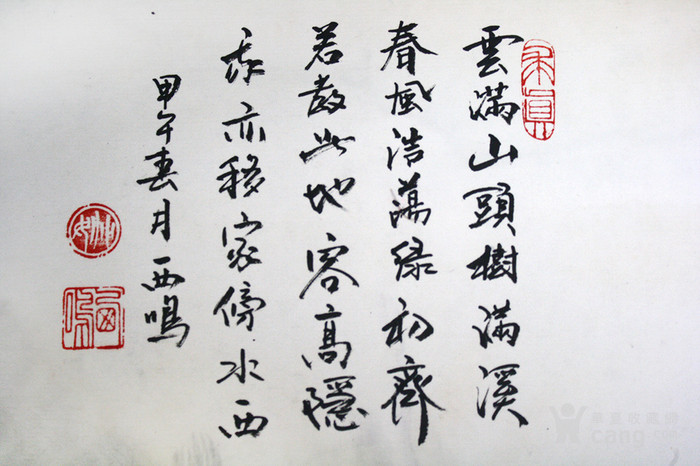 雲滿山頭樹滿溪
春風浩蕩绿初齊
若教此地容高隱
我亦移家傍水西
甲午春月西鳴